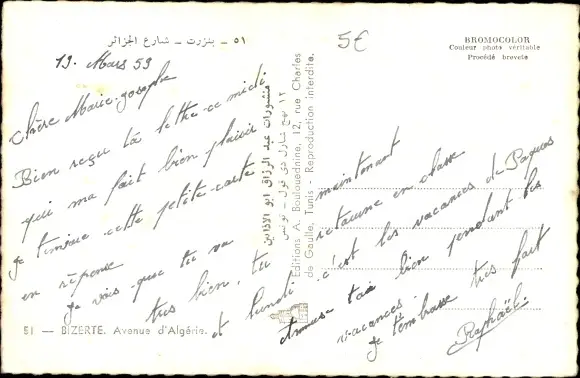 ٥١ – بنزرت – شارع الجزائر
5€
BROMOCOLOR
Couleur photo véritable
Procédé breveté
19. Mars 59
Chère Marie-Josèphe
Bien reçu ta lettre ce midi
qui m'a fait bien plaisir
je t'envoie cette petite carte
en réponse
je vois que tu va
très bien, tu
et lundi
maintenant
retourne en classe
c'est les vacances de Paques
amuse toi bien pendant les
vacances.
je t'embrasse très fort
Raphaël
منشورات عبد الرزاق ابو الاذانين
١٢ نهج شارل دي قول – تونس
Editions A. Boulouednine, 12, rue Charles
de Gaulle, Tunis - Reproduction interdite.
51 — BIZERTE. Avenue d'Algérie.